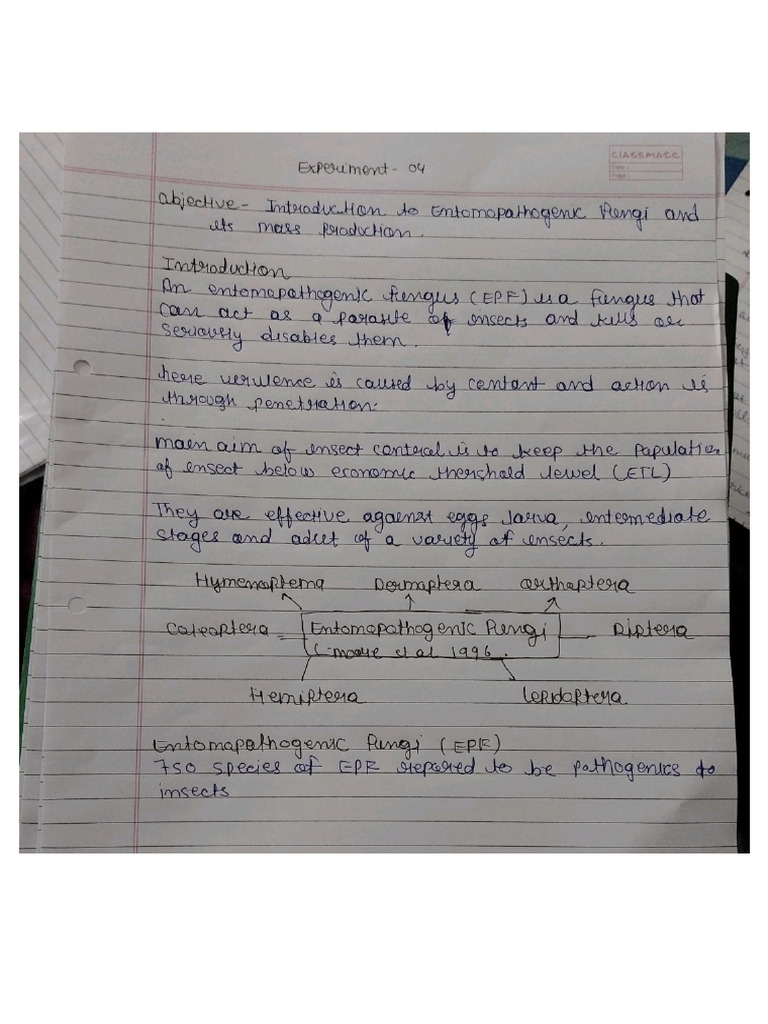 Experiment - 04
classmate
Date :
Page :
Objective - Introduction to Entomopathogenic Fungi and
its mass production.
Introduction
An entomopathogenic fungus (EPF) is a fungus that
can act as a parasite of insects and kills or
seriously disables them.
here verulence is caused by contant and action is
through penetration.
main aim of insect control is to keep the population
of insect below economic thershold level (ETL)
They are effective against eggs larva, intermediate
stages and adult of a variety of insects.
Hymenoptera Dermaptera Orthoptera
Coleoptera Entomopathogenic Fungi Diptera
(-moore et al 1996.
Hemiptera Lepidoptera
Entomopathogenic Fungi (EPF)
750 species of EPF repored to be pathogenics to
insects